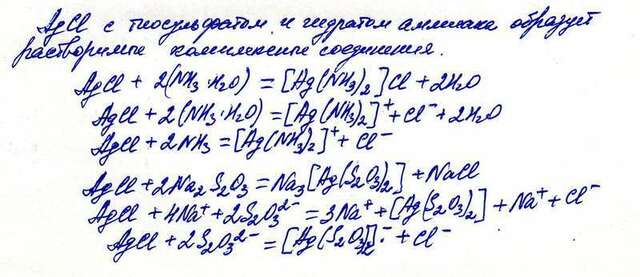 AgCl с тиосульфатом и гидратом аммиака образует
растворимые комплексные соединения.
AgCl + 2(NH₃·H₂O) = [Ag(NH₃)₂]Cl + 2H₂O
AgCl + 2(NH₃·H₂O) = [Ag(NH₃)₂]⁺ + Cl⁻ + 2H₂O
AgCl + 2NH₃ = [Ag(NH₃)₂]⁺ + Cl⁻
AgCl + 2Na₂S₂O₃ = Na₃[Ag(S₂O₃)₂] + NaCl
AgCl + 4Na⁺ + 2S₂O₃²⁻ = 3Na⁺ + [Ag(S₂O₃)₂] + Na⁺ + Cl⁻
AgCl + 2S₂O₃²⁻ = [Ag(S₂O₃)₂]⁻ + Cl⁻